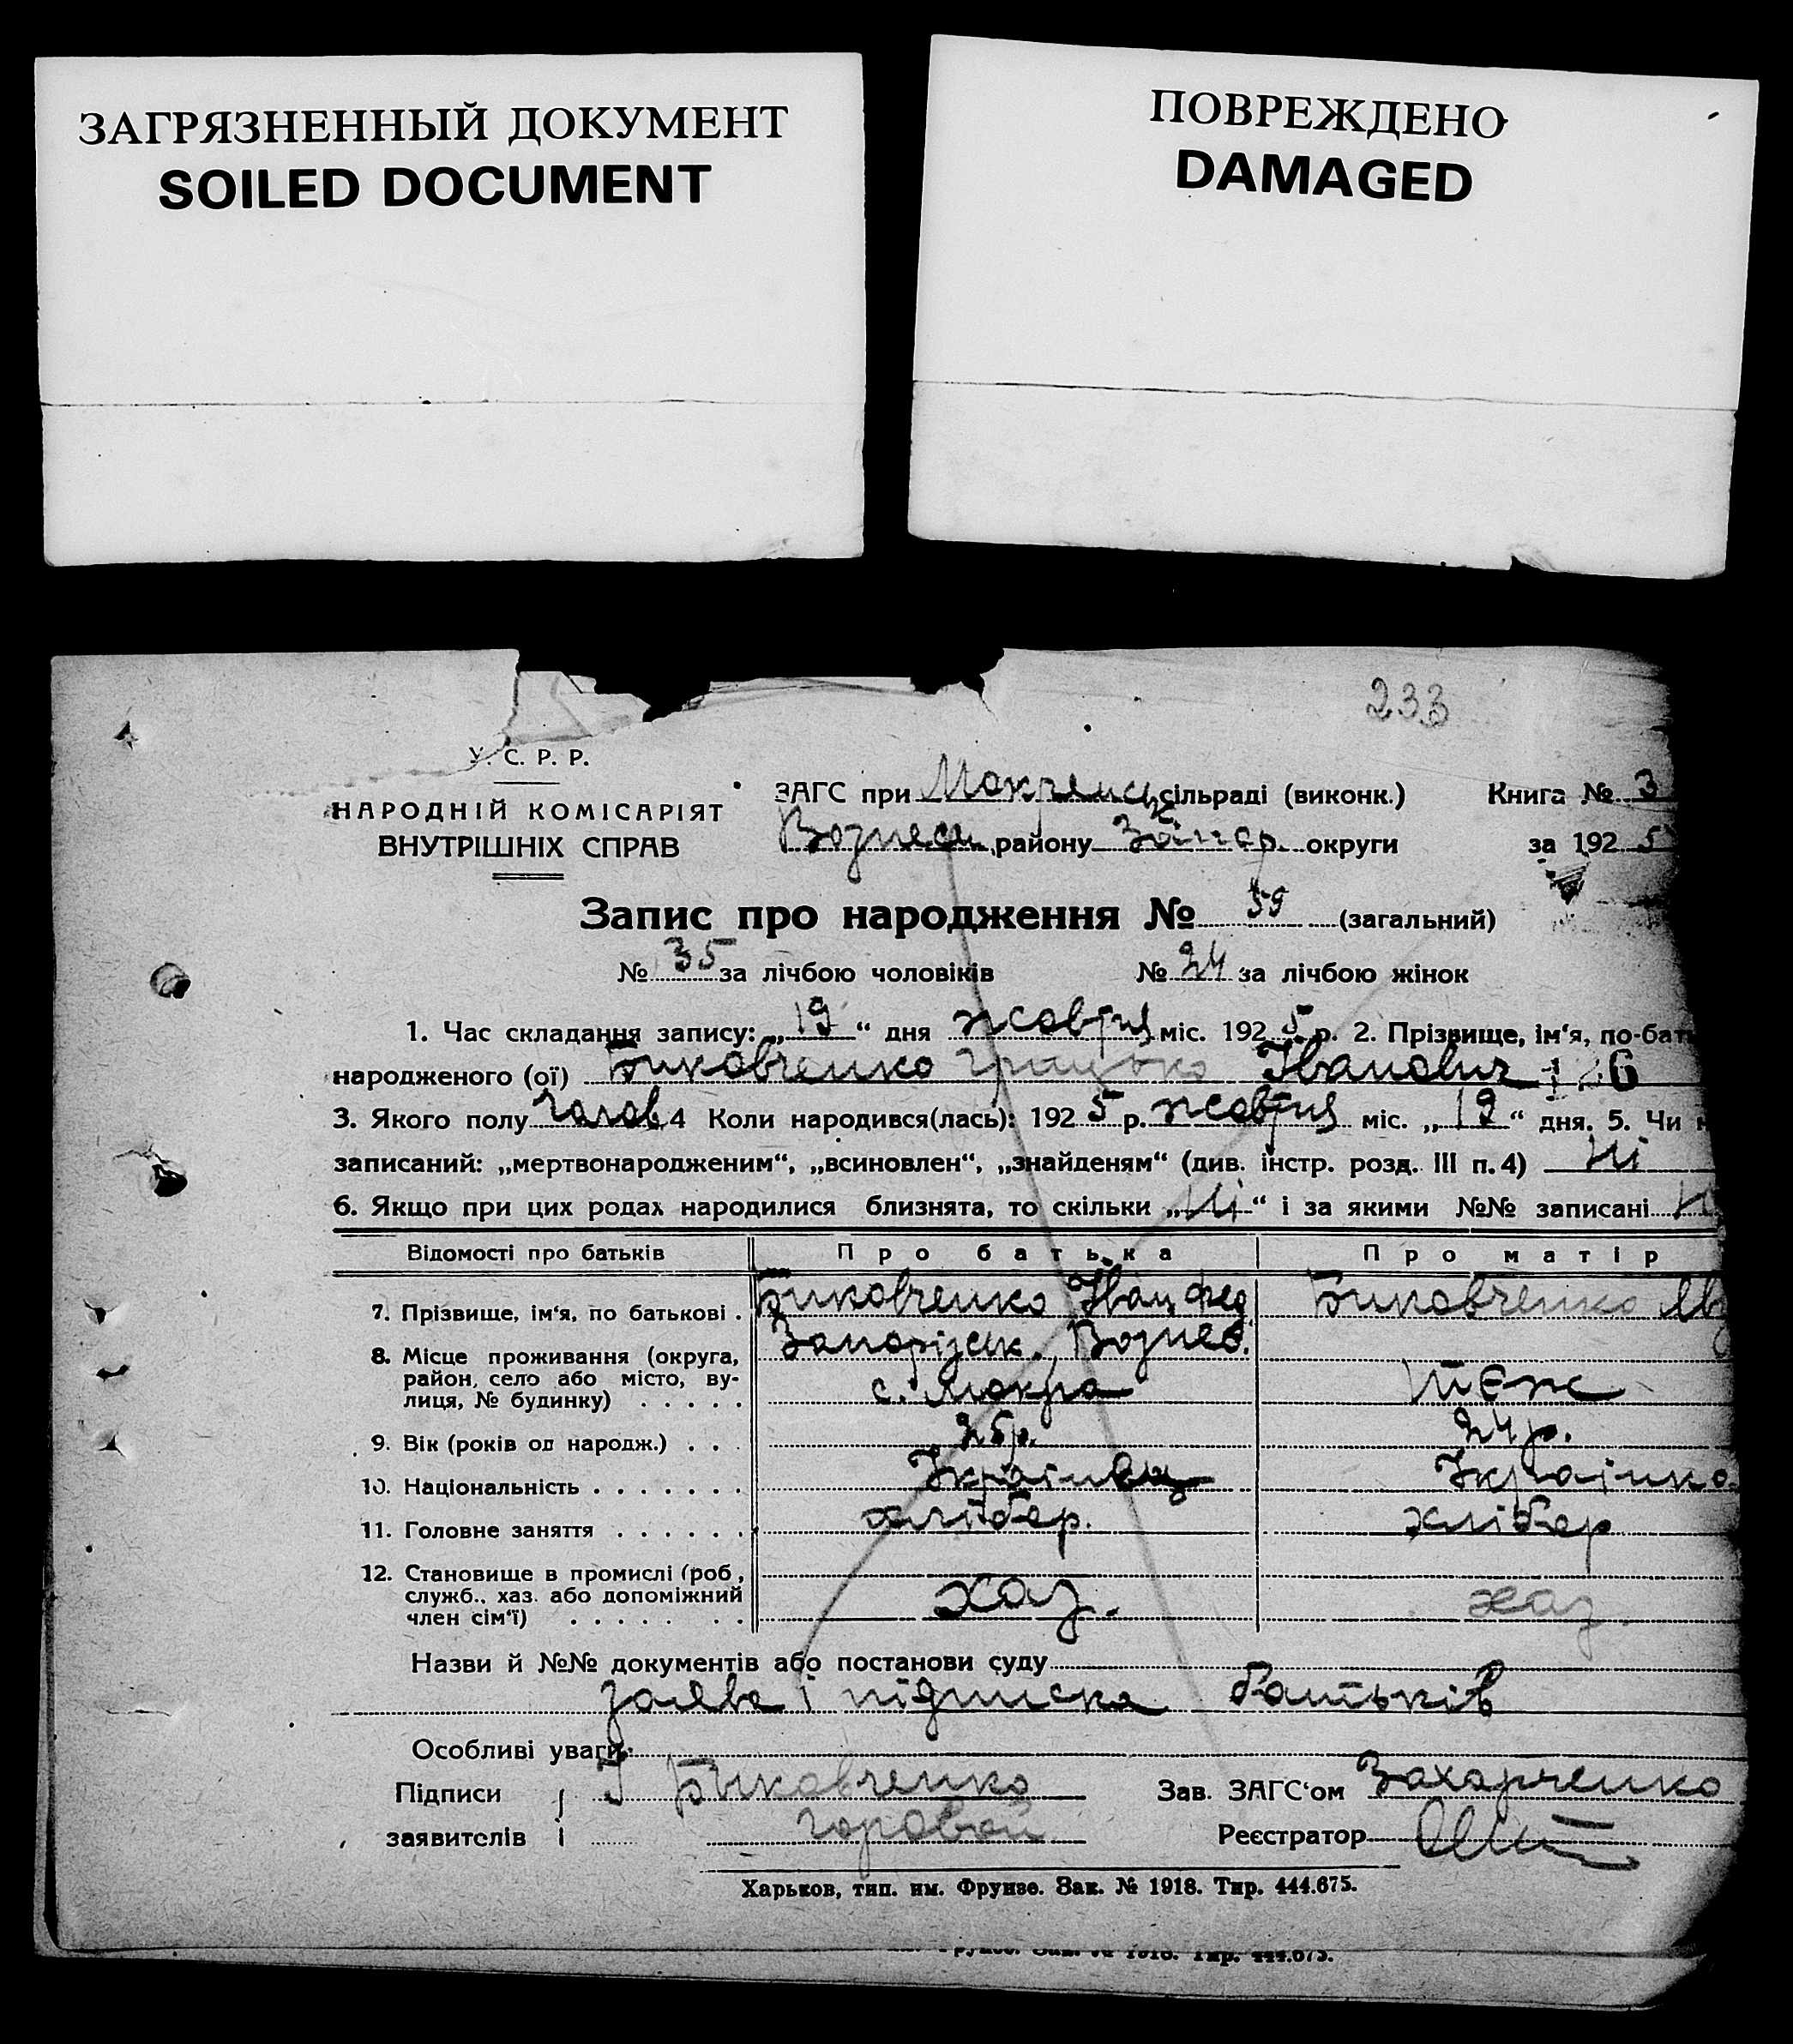 ЗАГРЯЗНЕННЫЙ ДОКУМЕНТ
SOILED DOCUMENT
ПОВРЕЖДЕНО
DAMAGED
233
У. С. Р. Р.
НАРОДНІЙ КОМІСАРІЯТ
ВНУТРІШНІХ СПРАВ
ЗАГС при Мокрянськ сільраді (виконк.) Книга № 3
Вознесен. району Запор. округи за 1925
Запис про народження № 59 (загальний)
№ 35 за лічбою чоловіків № 24 за лічбою жінок
1. Час складання запису: „19“ дня жовтня міс. 1925 р. 2. Прізвище, ім‘я, по-бат
народженого (ої) Биковченко Грицько Іванович
3. Якого полу чолов 4 Коли народився(лась): 1925 р. жовтня міс. „12“ дня. 5. Чи н
записаний: „мертвонародженим“, „всиновлен“, „знайденям“ (див. інстр. розд. III п. 4) ні
6. Якщо при цих родах народилися близнята, то скільки „ні“ і за якими №№ записані
Відомості про батьків Про батька Про матір
7. Прізвище, ім‘я, по батькові . Биковченко Іван Фед Биковченко
8. Місце проживання (округа, район, село або місто, вулиця, № будинку) . . . . . Запорізськ. Вознес. с. Мокра теж
9. Вік (років од народж.) . . . 25 р. 24 р.
10. Національність . . . . . . . Українец Українка
11. Головне заняття . . . . . . хлібор. хлібор
12. Становище в промислі (роб, служб., хаз. або допоміжний член сім‘ї) . . . . . . . хаз. хаз.
Назви й №№ документів або постанови суду
заява і підписка батьків
Особливі уваги:
Підписи І Биковченко Зав. ЗАГС‘ом Захарченко
заявителів Горовой Реєстратор
Харьков, тип. им. Фрунзе. Зак. № 1918. Тир. 444.675.
Зак. № 1918. Тир. 444.675.